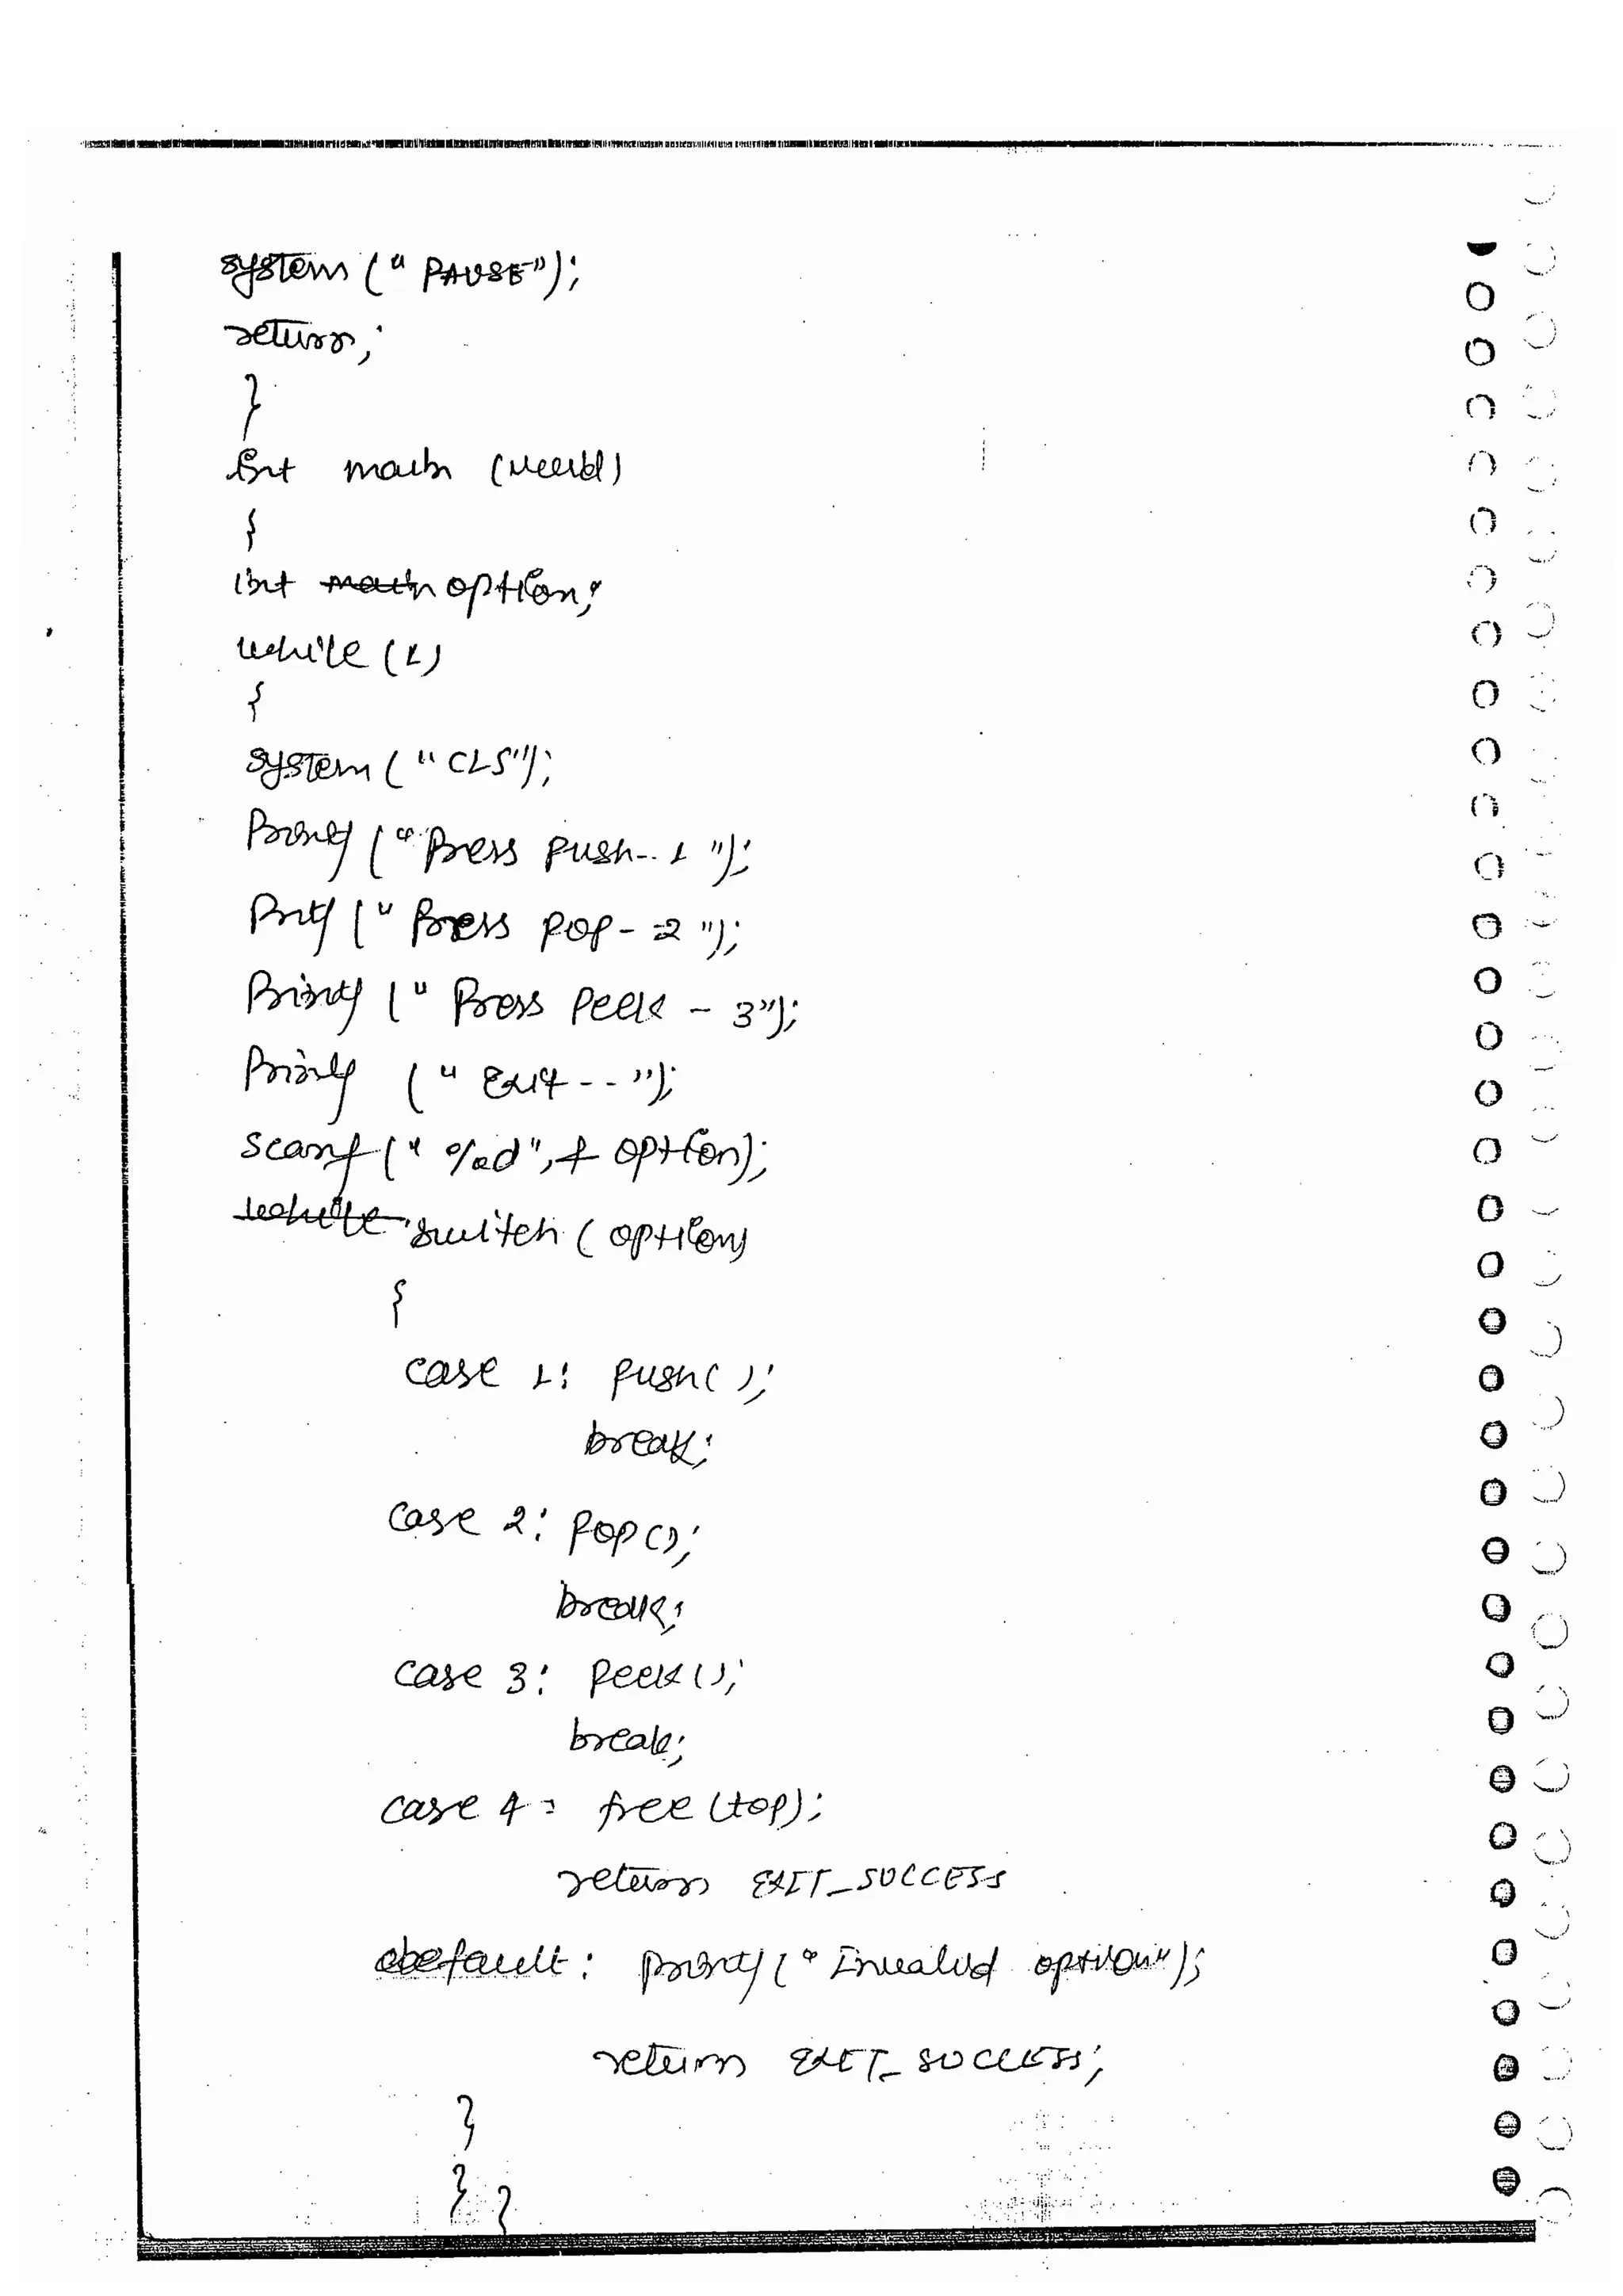 system (" PAUSE");
return;
}
int main (void)
{
int main option;
while (1)
{
system (" CLS");
Printf (" Press push-- 1 ");
Printf (" Press POP- =2 ");
Printf (" Press Peek - 3");
Printf (" Exit -- ");
scanf (" %d", & option);
while switch ( option)
{
case 1: push( );
break;
case 2: pop();
break;
case 3: peek();
break;
case 4 : free (top);
return EXIT_SUCCESS
default : printf (" Invalid option");
return EXIT_SUCCESS;
}
} }